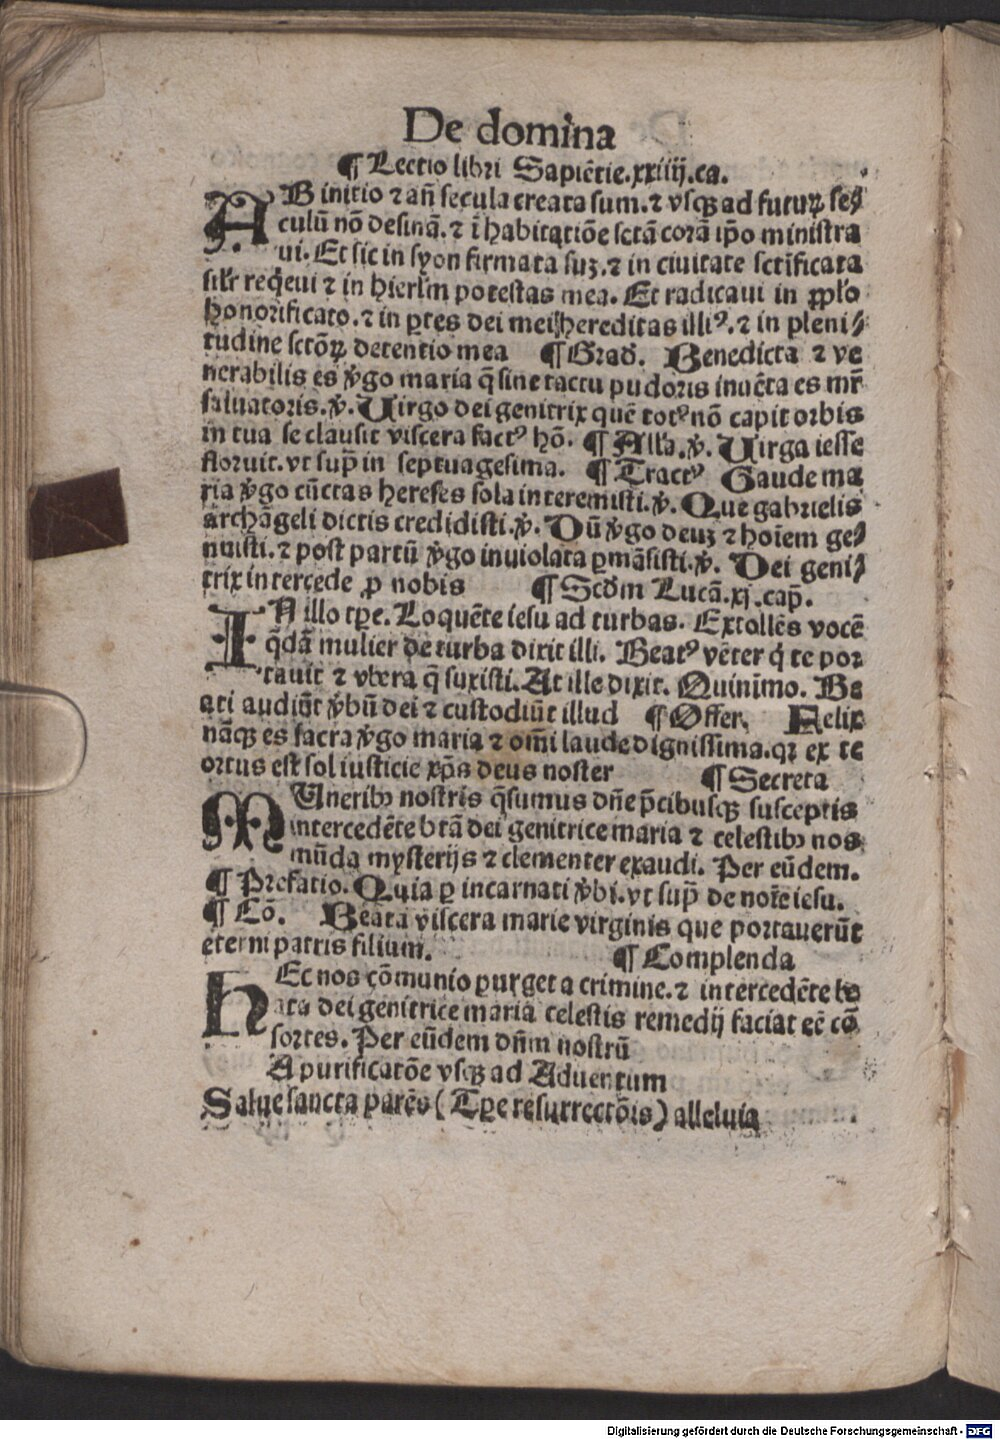 De domina
¶ Lectio libri Sapiētie.xxiiij.ca.
AB initio ⁊ añ secula creata sum.⁊ vsqꝫ ad futuꝝ se⸗
culū nō desinā.⁊ ī habitatiōe sctā corā ip̄o ministra
ui. Et sic in syon firmata suꝫ.⁊ in ciuitate sctīficata
sil̄r req̄eui ⁊ in hierl̄m potestas mea. Et radicaui in ꝓpl̄o
honorificato.⁊ in ꝑtes dei mei hereditas illiꝰ.⁊ in pleni⸗
tudine sctōꝝ detentio mea ¶ Grad̄. Benedicta ⁊ ve
nerabilis es v̄go maria q̄ sine tactu pudoris inuēta es mr̄
saluatoris.v̄. Uirgo dei genitrix quē totꝰ nō capit orbis
in tua se clausit viscera factꝰ hō. ¶ All'a.v̄. Uirga iesse
floruit. vt sup̄ in septuagesima. ¶ Tractꝰ Gaude ma
ria v̄go cūctas hereses sola interemisti.v̄. Que gabrielis
archāgeli dictis credidisti.v̄. Dū v̄go deuꝫ ⁊ hoīem ge⸗
nuisti.⁊ post partū v̄go inuiolata ꝑmāsisti.v̄. Dei geni⸗
trix intercede ꝓ nobis ¶ Scd̄m Lucā.xj.cap̄.
IN illo tꝑe. Loquēte iesu ad turbas. Extollēs vocē
q̄dā mulier de turba dixit illi. Beatꝰ vēter q̇ te por
tauit ⁊ vbera q̄ suxisti. At ille dixit. Quinimo. Be
ati audiūt v̄bū dei ⁊ custodiūt illud ¶ Offer. Felix
nāqꝫ es sacra v̄go maria ⁊ om̄i laude dignissima. qꝛ ex te
ortus est sol iusticie xp̄s deus noster ¶ Secreta
MUneribꝫ nostris q̄sumus dn̄e p̄cibusqꝫ susceptis
intercedēte btā dei genitrice maria ⁊ celestibꝫ nos
mūda mysterijs ⁊ clementer exaudi. Per eūdem.
¶ Prefatio. Quia ꝑ incarnati v̄bi. vt sup̄ de noīe iesu.
¶ Cō. Beata viscera marie virginis que portauerūt
eterni patris filium. ¶ Complenda
HEc nos cōmunio purget a crimine.⁊ intercedēte be
ata dei genitrice maria celestis remedij faciat eē cō
sortes. Per eūdem dn̄m nostrū
A purificatōe vsqꝫ ad Aduentum
Salue sancta parēs (Tꝑe resurrectōis) alleluia
Digitalisierung gefördert durch die Deutsche Forschungsgemeinschaft - DFG